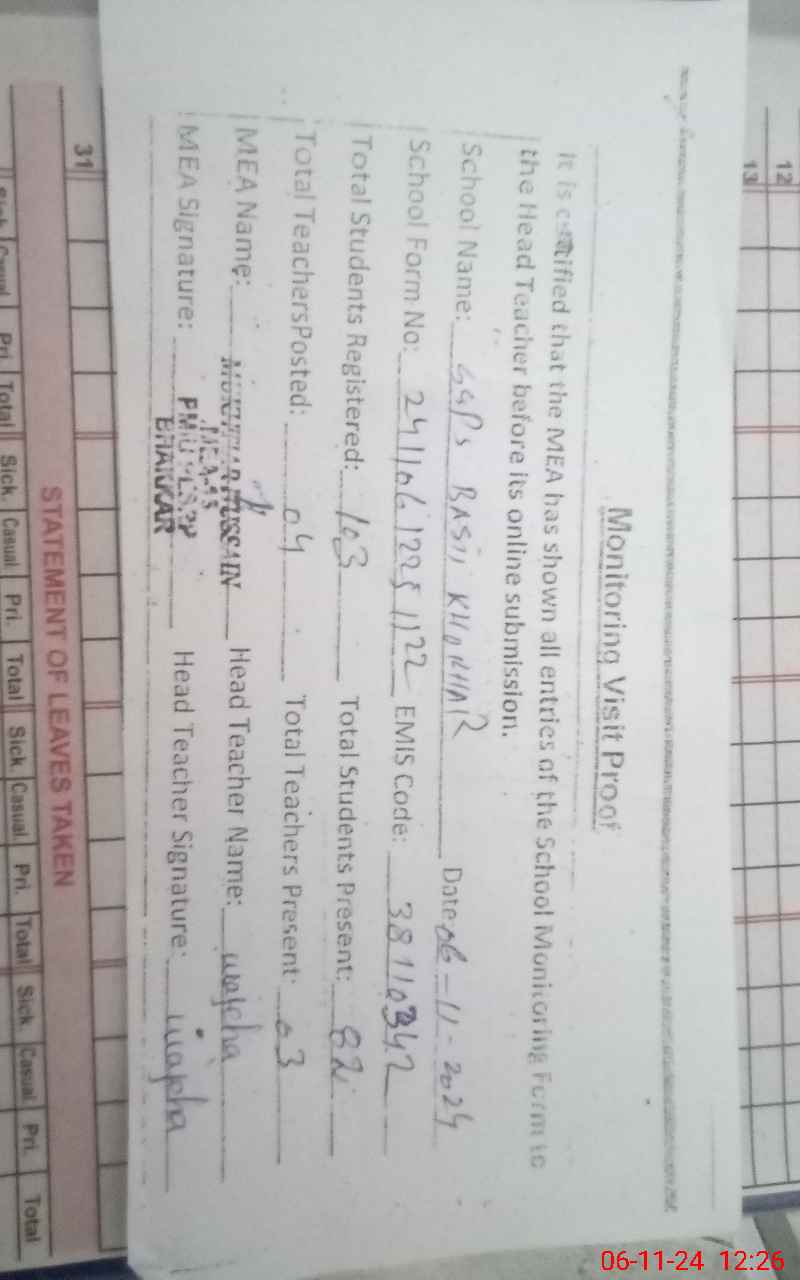 Monitoring Visit Proof
It is certified that the MEA has shown all entries of the School Monitoring Form to
the Head Teacher before its online submission.
School Name: GGPS BASTI KHOKHAR Date: 06-11-2024
School Form No: 24110612251122 EMIS Code: 38110342
Total Students Registered: 103 Total Students Present: 82
Total TeachersPosted: 04 Total Teachers Present: 03
MEA Name: HUSSAIN Head Teacher Name:
MEA-15
MEA Signature: BHAKKAR Head Teacher Signature:
12
13
31
STATEMENT OF LEAVES TAKEN
Sick Casual Pri. Total Sick. Casual Pri. Total Sick Casual. Pri. Total Sick. Casual Pri. Total
06-11-24 12:26